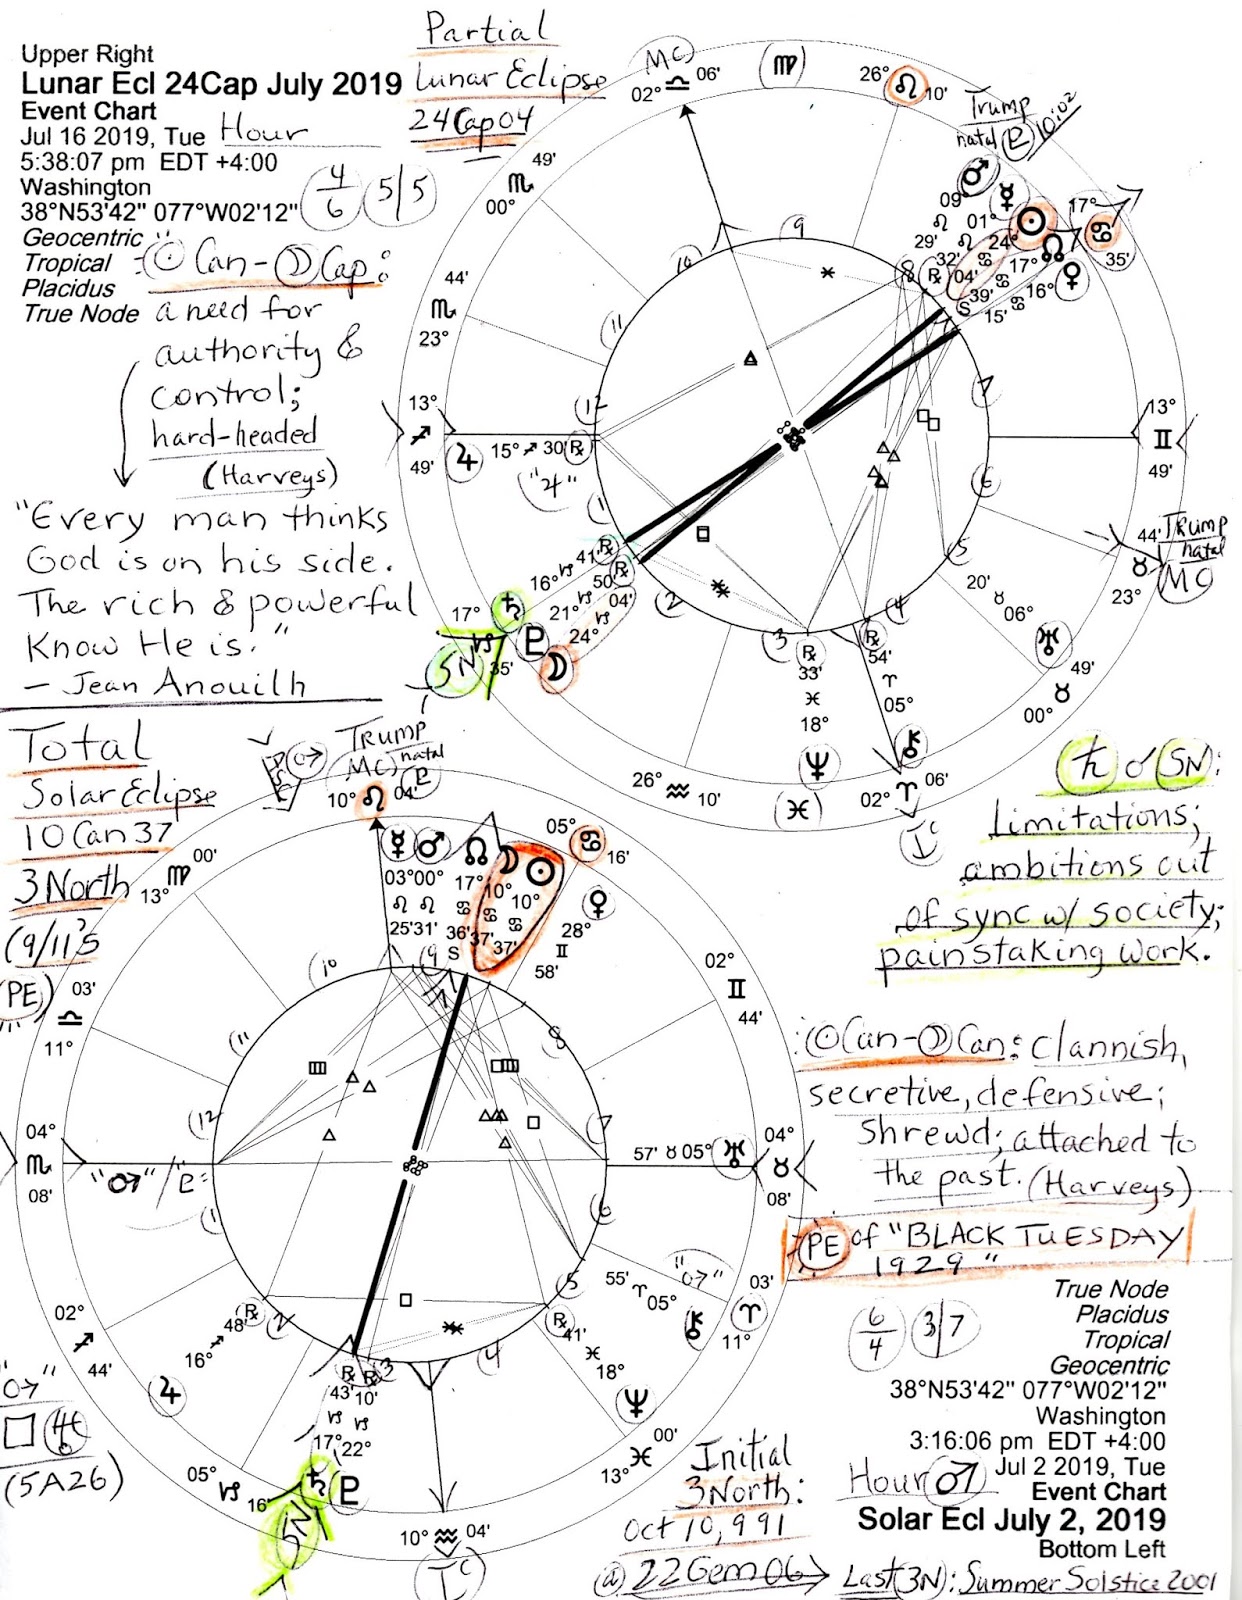 Upper Right
Lunar Ecl 24Cap July 2019
Event Chart
Jul 16 2019, Tue Hour
5:38:07 pm EDT +4:00
Washington
38°N53'42" 077°W02'12"
4/6 5/5
Geocentric
Tropical
Placidus
True Node
Partial
Lunar Eclipse
24Cap04
☉Can-☽Cap:
a need for
authority &
control;
hard-headed
(Harveys)
"Every man thinks
God is on his side.
The rich & powerful
Know He is."
– Jean Anouilh
MC
02° ♎ 06'
♍
26° ♌ 10'
Trump
natal ♇ 10:02
♂ 09° ♌ 29'
☿ 01° ♌ 32' ℞
☉ 24° ♋ 04'
☊ 17° ♋ 39' S
♀ 16° ♋ 15'
17° ♋ 35'
49' ♏ 00°
44' ♏ 23°
13° ♐ 49'
♃ 15° ♐ 30' ℞
"♃"
13° ♊ 49'
♄ 16° ♑ 41' ℞
♇ 21° ♑ 50' ℞
☽ 24° ♑ 04'
17° ♑ 35'
SN
Trump
natal
MC
44' ♉ 23°
20' ♉ 06° ♅
49' ♉ 00°
℞ 33' ♓ 18° ♆
℞ 54' ♈ 05° ⚷
26° ♒ 10'
♓
02° ♈ 06'
IC
1 2 3 4 5 6 7 8 9 10 11 12
♄ ☌ SN:
Limitations;
ambitions out
of sync w/ society;
painstaking work.
Total
Solar Eclipse
10 Can 37
3 North
(9/11's
PE)
♂
Trump
MC natal
♇
10° ♌ 04'
☿ 03° ♌ 25'
♂ 00° ♌ 31'
☊ 17° ♋ 36' S
☽ 10° ♋ 37'
☉ 10° ♋ 37'
05° ♋ 16'
♀ 28° ♊ 58'
13° ♍ 00'
03' ♎ 11°
02° ♊ 44'
04° ♏ 08'
"♂"/♇:
57' ♉ 05° ♅
04° ♉ 08'
02° ♐ 44'
℞ 48' ♐ 16° ♃
55' ♈ 05° ⚷
"♂"
03' ♈ 11°
℞ 41' ♓ 18° ♆
00' ♓ 13°
℞ 43' ♑ 17° ♄
℞ 10' ♑ 22° ♇
05° ♑ 16'
SN
10° ♒ 04'
IC
1 2 3 4 5 6 7 8 9 10 11 12
"♂"
□ ♅
(5A26)
☉Can-☽Can: Clannish,
secretive, defensive;
shrewd; attached to
the past. (Harveys)
PE of "BLACK TUESDAY
1929"
6/4 3/7
True Node
Placidus
Tropical
Geocentric
38°N53'42" 077°W02'12"
Washington
3:16:06 pm EDT +4:00
Hour ♂ Jul 2 2019, Tue
Event Chart
Solar Ecl July 2, 2019
Bottom Left
Initial
3North:
Oct 10, 991
@ 22Gem06→ Last (3N): Summer Solstice 2001